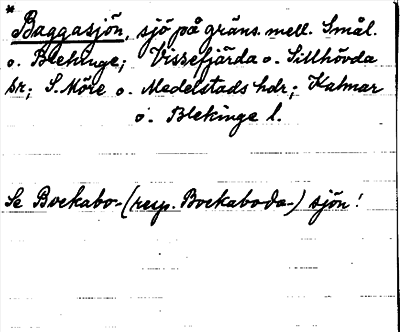 *
Baggasjön, sjö på gräns. mell. Smål.
o. Blekinge; Vissefjärda o. Sillhövda
snr; S. Möre o. Medelstads hdr; Kalmar
o. Blekinge l.
Se Bockabo- (resp. Bockaboda-) sjön!